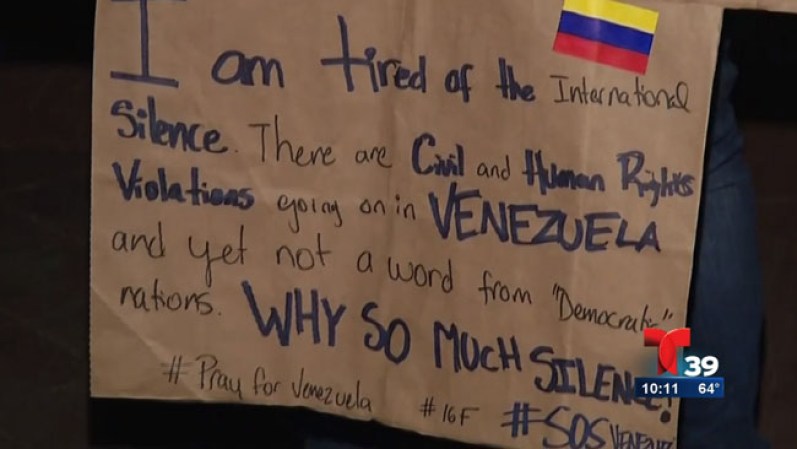 I am tired of the International
Silence. There are Civil and Human Rights
Violations going on in VENEZUELA
and yet not a word from "Democratic"
nations. WHY SO MUCH SILENCE!
# Pray for Venezuela #16F #SOS
39
10:11 64°